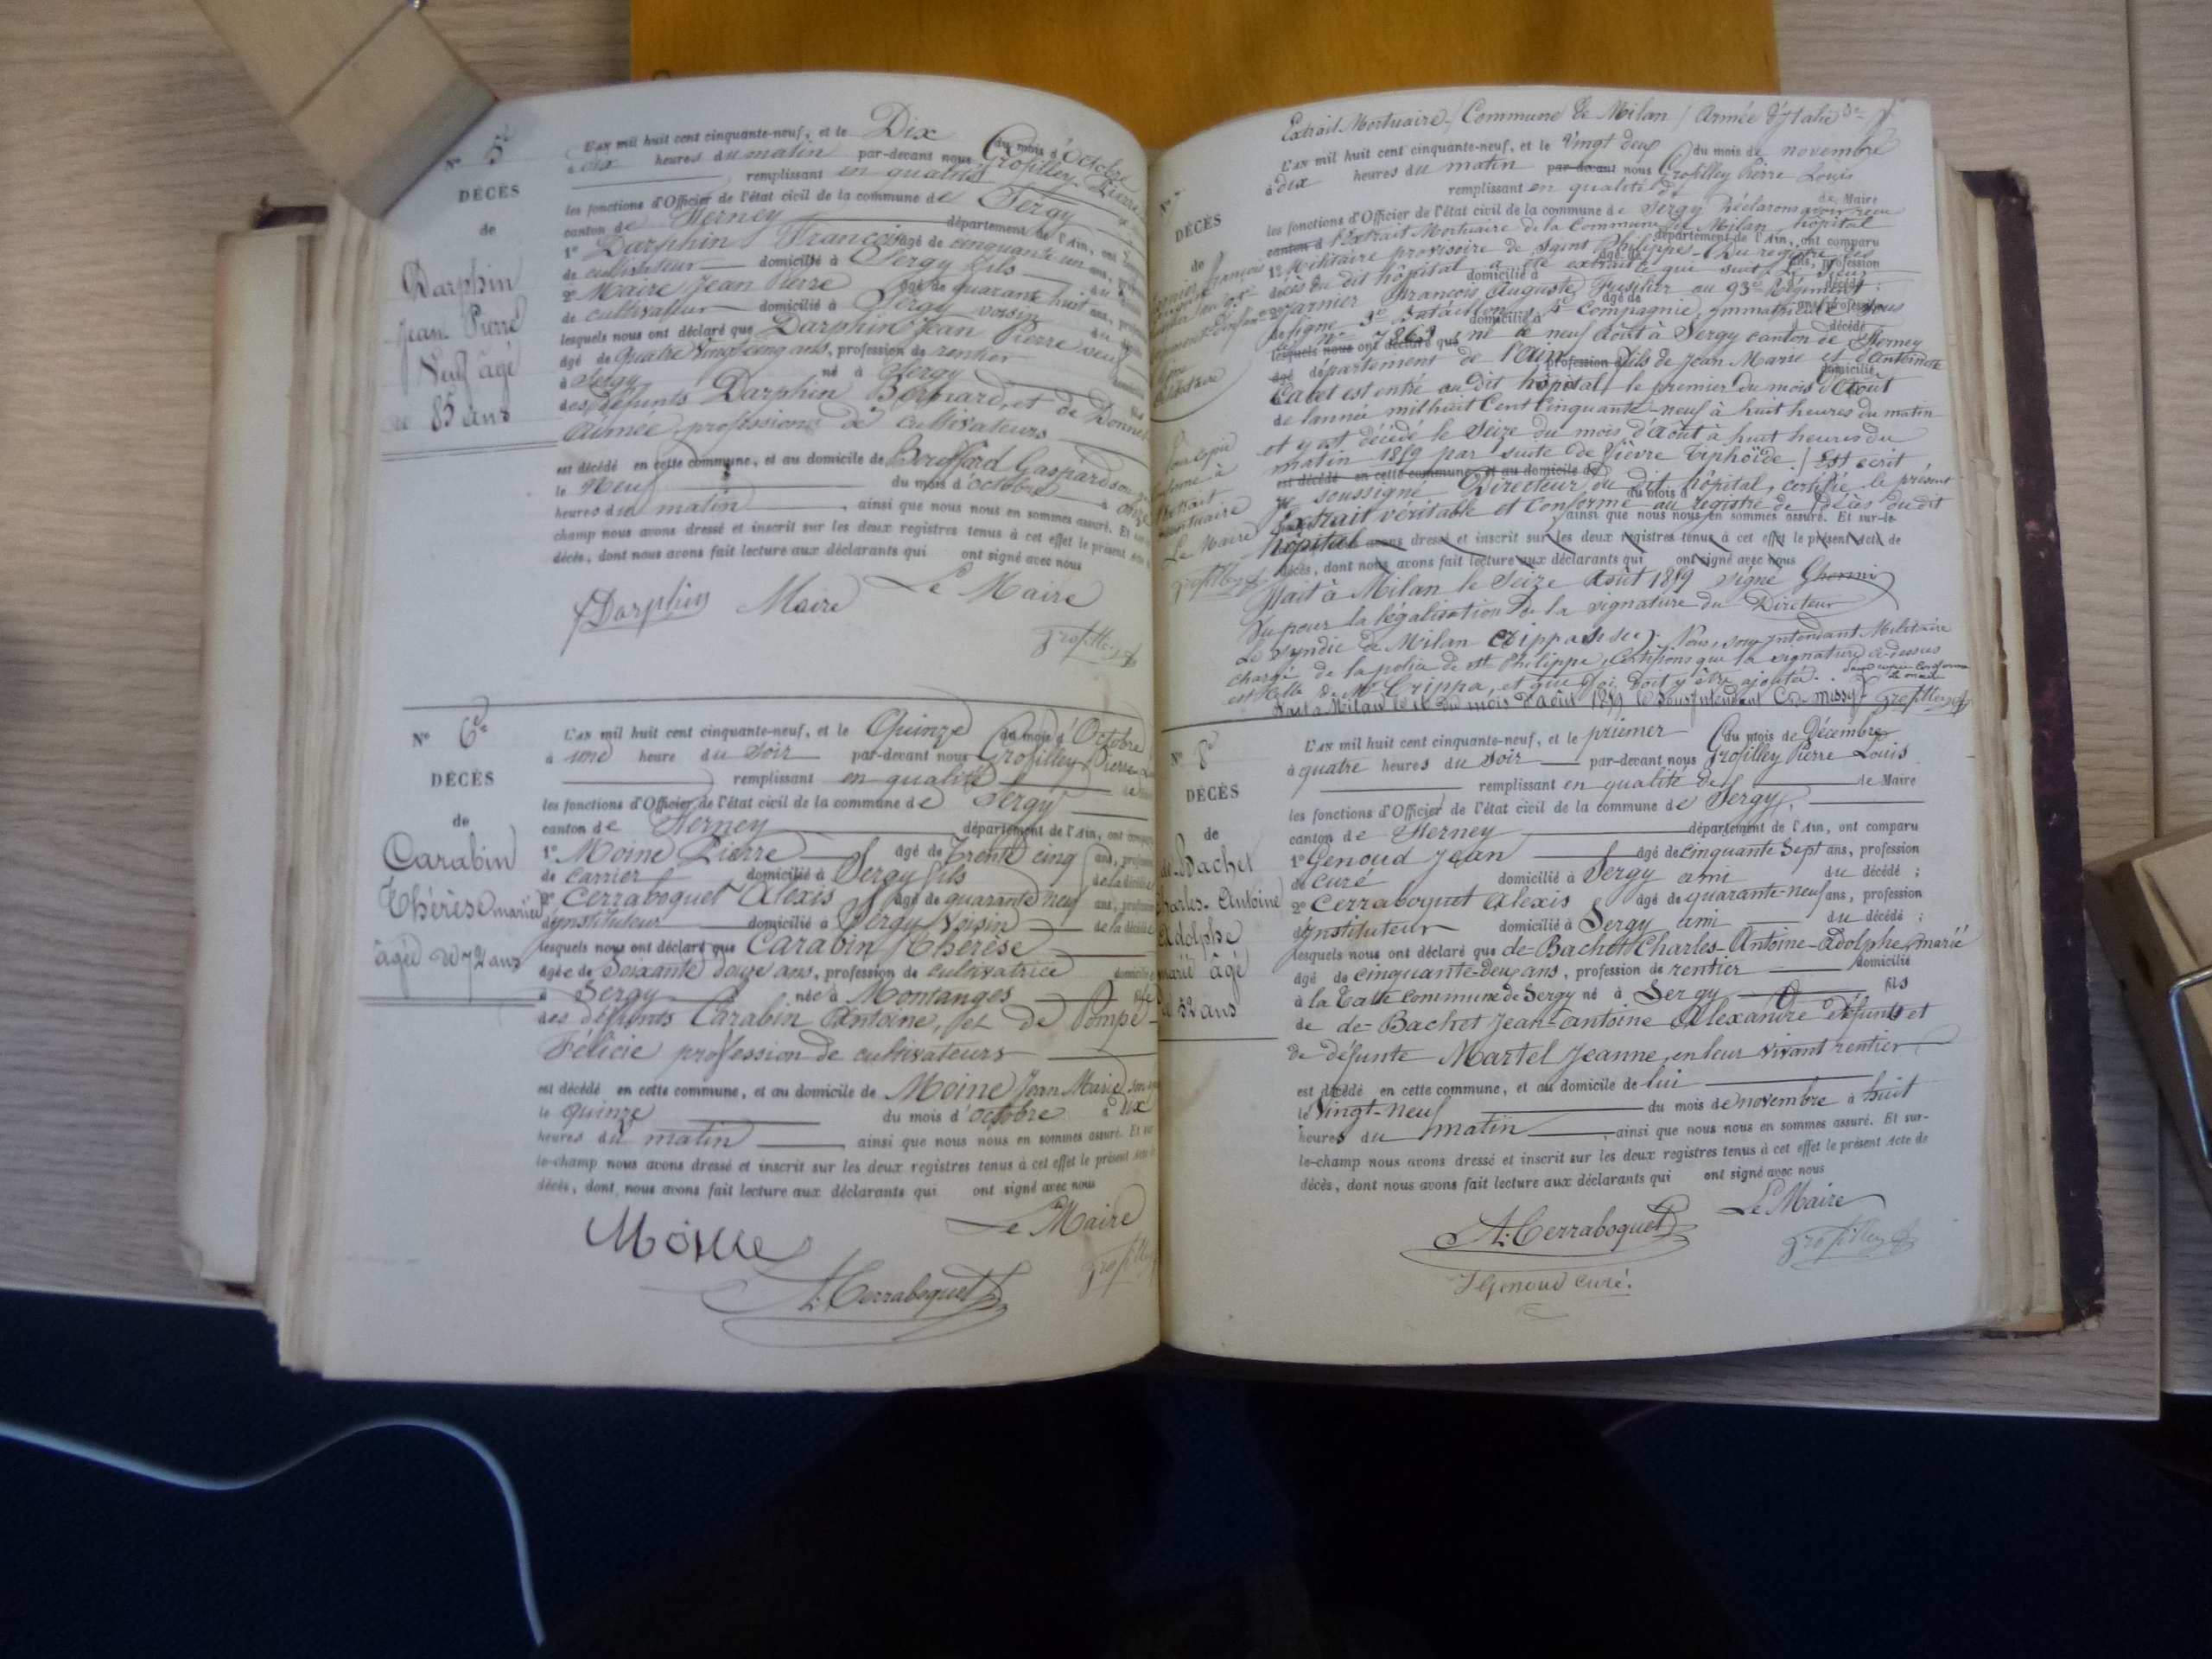 N° 5e
DÉCÈS
de
Darphin
Jean Pierre
Veuf âgé
de 85 ans
L'an mil huit cent cinquante-neuf, et le Dix du mois d'Octobre
à dix heures du matin par-devant nous Grosfilley Pierre
remplissant en qualité
les fonctions d'Officier de l'état civil de la commune de Sergy
canton de Ferney département de l'Ain, ont comparu
1° Darphin François âgé de cinquante un ans,
de cultivateur domicilié à Sergy fils du
2° Maire Jean Pierre âgé de quarante huit ans, profession
de cultivateur domicilié à Sergy voisin du
lesquels nous ont déclaré que Darphin Jean Pierre veuf
âgé de Quatre Vingt cinq ans, profession de rentier
à Sergy né à Sergy fils
des défunts Darphin Bernard, et de
Aimée, professions de cultivateurs
est décédé en cette commune, et au domicile de Gaspard son
le Neuf du mois d'octobre à onze
heures du matin, ainsi que nous nous en sommes assuré. Et
champ nous avons dressé et inscrit sur les deux registres tenus à cet effet le présent acte
décès, dont nous avons fait lecture aux déclarants qui ont signé avec nous
Le Maire
f Darphin Maire
Grosfilley
N° 6e
DÉCÈS
de
Carabin
Thérèse mariée
âgée de 72 ans
L'an mil huit cent cinquante-neuf, et le Quinze du mois d'Octobre
à une heure du soir par-devant nous Grosfilley Pierre
remplissant en qualité
les fonctions d'Officier de l'état civil de la commune de Sergy
canton de Ferney département de l'Ain, ont comparu
1° Moine Pierre âgé de Trente cinq ans, profession
de carrier domicilié à Sergy fils de la décédée
2° Cerraboquet Alexis âgé de quarante neuf ans, profession
d'instituteur domicilié à Sergy Voisin de la décédée
lesquels nous ont déclaré que Carabin Thérèse
âgée de Soixante douze ans, profession de cultivatrice domiciliée
à Sergy née à Montanges fille
des défunts Carabin Antoine, et de Pompe
Félicie profession de cultivateurs
est décédé en cette commune, et au domicile de Moine Jean Marie son
le quinze du mois d'octobre à dix
heures du matin, ainsi que nous nous en sommes assuré. Et sur
le-champ nous avons dressé et inscrit sur les deux registres tenus à cet effet le présent acte de
décès, dont nous avons fait lecture aux déclarants qui ont signé avec nous
Le Maire
Moine
Grosfilley
A. Cerraboquet
Extrait Mortuaire / Commune de Milan / Armée d'Italie
N° 7
DÉCÈS
de
L'an mil huit cent cinquante-neuf, et le Vingt deux du mois de novembre
à dix heures du matin par-devant nous Grosfilley Pierre Louis
remplissant en qualité de de Maire
les fonctions d'Officier de l'état civil de la commune de Sergy Déclarons avoir reçu
canton d l'Extrait Mortuaire de la Commune de Milan, hôpital
département de l'Ain, ont comparu
1° Militaire provisoire de Saint Philippe. Du registre des
décès du dit hôpital a été extrait ce que suit. Le Sieur
2° Garnier François Auguste Fusilier au 93e Régiment
de ligne 3e Bataillon, 4e Compagnie, immatriculé sous
le N° 7869 né le neuf Août à Sergy canton de Ferney
département de l'Ain fils de Jean Marie et d'Antoinette
est entré au dit hôpital le premier du mois d'Août
de l'année mil huit Cent Cinquante-neuf à huit heures du matin
et y est décédé le Seize du mois d'Août à huit heures du
matin 1859 par suite de fièvre typhoïde. / Est écrit
est décédé en cette commune, et au domicile de
Je soussigné Directeur du dit hôpital, certifie le présent
Extrait véritable et conforme au registre de décès du dit
ainsi que nous nous en sommes assuré. Et sur-le
hôpital
avons dressé et inscrit sur les deux registres tenus à cet effet le présent acte de
décès, dont nous avons fait lecture aux déclarants qui ont signé avec nous
Fait à Milan le Seize Août 1859 signé
Vu pour la légalisation de la signature du Directeur
Le Syndic de Milan Nous, sous-intendant Militaire
chargé de la police de St Philippe, Certifions que la signature ci-dessus
est celle de Mr Crippa, et que foi doit y être ajoutée.
Fait à Milan le 16 du mois d'août 1859 le Sous-Intendant
Pour copie conforme
le maire
Grosfilley
Pour copie
conforme à
l'extrait
mortuaire
Le Maire
Grosfilley
N° 8e
DÉCÈS
de
de-Bachet
Charles-Antoine
Adolphe
marié âgé
de 52 ans
L'an mil huit cent cinquante-neuf, et le priemer du mois de Décembre
à quatre heures du soir par-devant nous Grosfilley Pierre Louis
remplissant en qualité de de Maire
les fonctions d'Officier de l'état civil de la commune de Sergy,
canton de Ferney département de l'Ain, ont comparu
1° Genoud Jean âgé de cinquante Sept ans, profession
de curé domicilié à Sergy ami du décédé ;
2° Cerraboquet Alexis âgé de quarante-neuf ans, profession
d'instituteur domicilié à Sergy ami du décédé ;
lesquels nous ont déclaré que de-Bachet Charles-Antoine-Adolphe, marié
âgé de cinquante-deux ans, profession de rentier domicilié
à la commune de Sergy né à Sergy fils
de de-Bachet Jean-antoine Alexandre défunt et
de défunte Martel Jeanne, en leur vivant rentier
est décédé en cette commune, et au domicile de lui
le Vingt-neuf du mois de novembre à huit
heures du matin, ainsi que nous nous en sommes assuré. Et sur-
le-champ nous avons dressé et inscrit sur les deux registres tenus à cet effet le présent acte de
décès, dont nous avons fait lecture aux déclarants qui ont signé avec nous
Le Maire
A. Cerraboquet
Grosfilley
J Genoud curé.